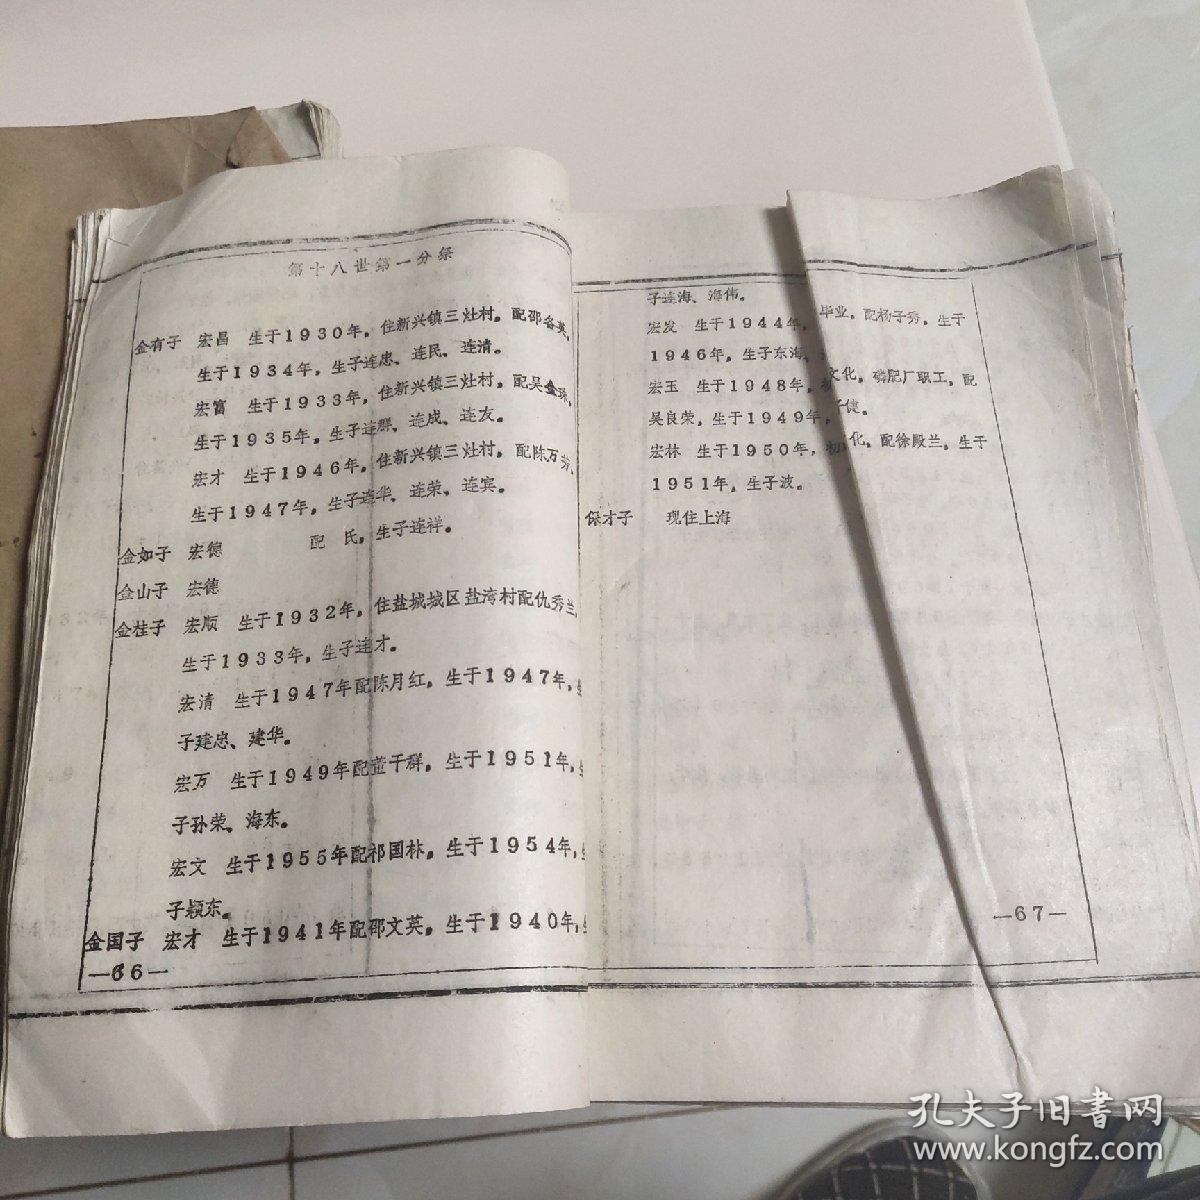 第十八世第一分祭
金有子 宏昌 生于1930年，住新兴镇三灶村，配邵各英，
生于1934年，生子连忠、连民、连清。
宏富 生于1933年，住新兴镇三灶村，配吴金珠，
生于1935年，生子连群、连成、连友。
宏才 生于1946年，住新兴镇三灶村，配陈万芳，
生于1947年，生子连华、连荣、连宾。
金如子 宏德 配 氏，生子连祥。
金山子 宏德
金桂子 宏顺 生于1932年，住盐城城区盐湾村配仇秀兰，
生于1933年，生子连才。
宏清 生于1947年配陈月红，生于1947年，生
子建忠、建华。
宏万 生于1949年配董千群，生于1951年，生
子孙荣、海东。
宏文 生于1955年配祁国林，生于1954年，生
子颖东。
金国子 宏才 生于1941年配邵文英，生于1940年，生
—66—
子连海、海伟。
宏发 生于1944年，毕业，配杨子秀，生于
1946年，生子东海、
宏玉 生于1948年，文化，磷肥厂职工，配
吴良荣，生于1949年，子健。
宏林 生于1950年，初化，配徐殿兰，生于
1951年，生子波。
保才子 现住上海
—67—
孔夫子旧书网
www.kongfz.com